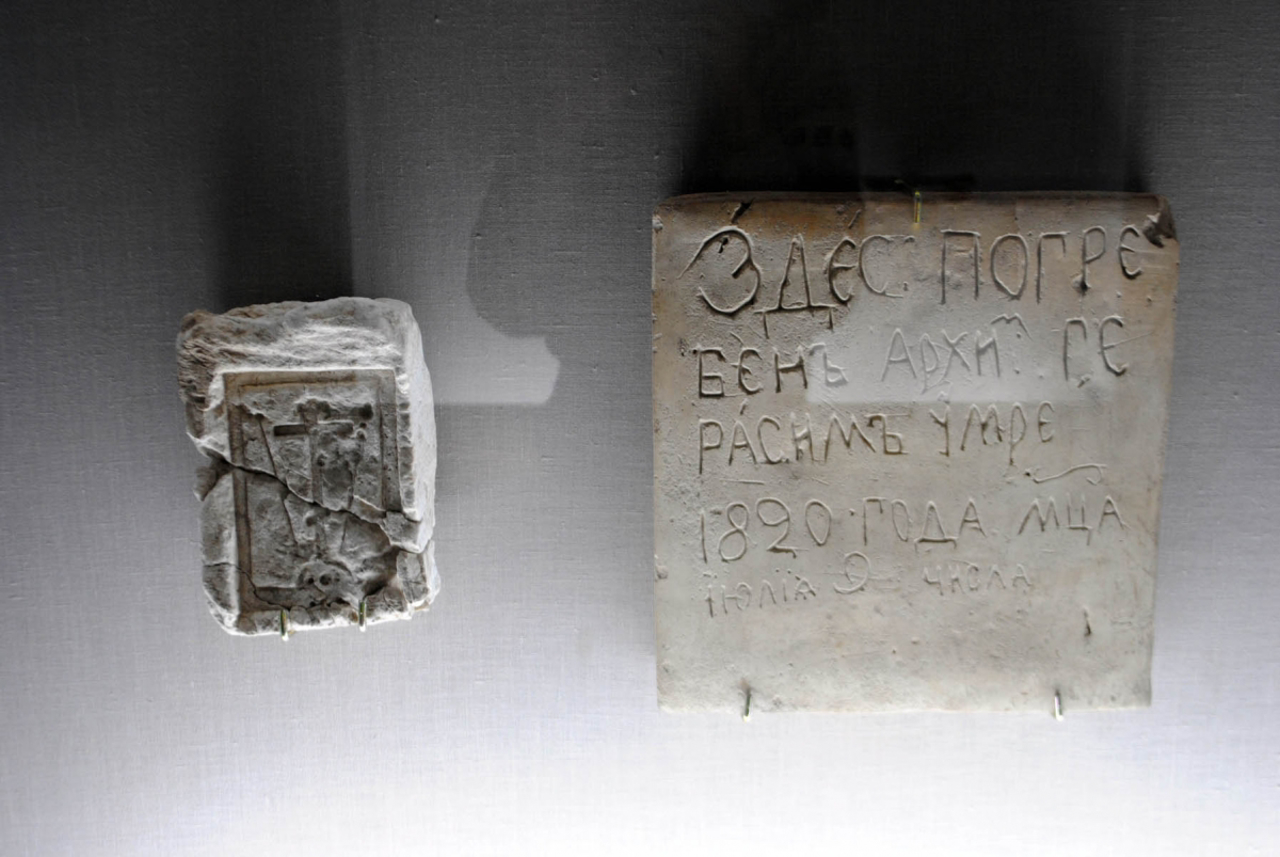 ЗДЕ́С ПОГРЕ
БЕНЪ АРХИᵐ. ГЕ
РА́СИМЪ У́МРЕ
1820 ГОДА МЦА
ІЮЛІА 9 ЧИСЛА